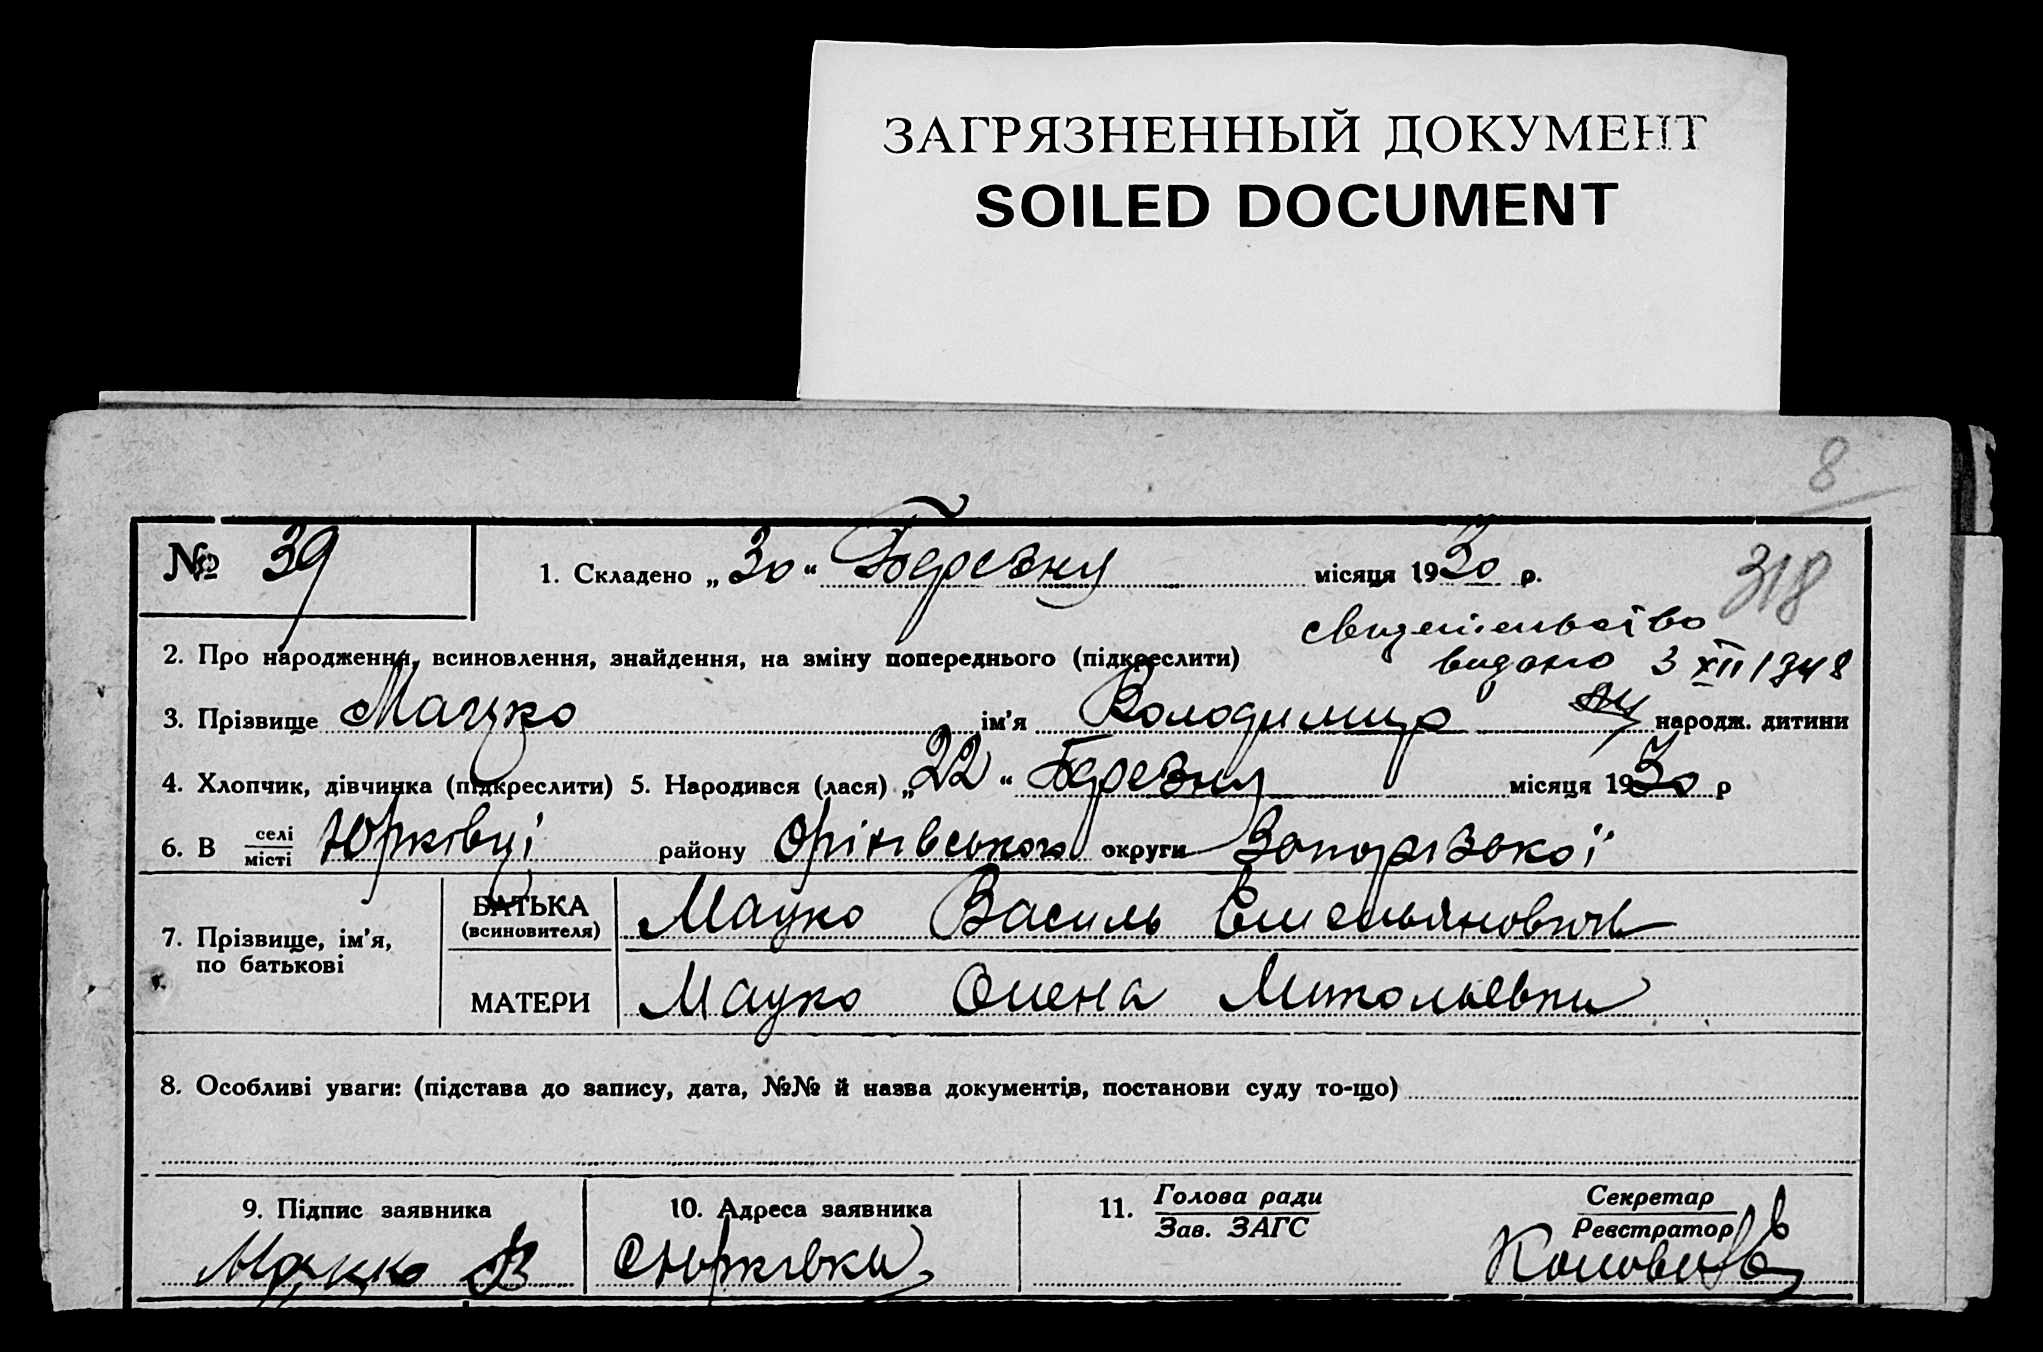 ЗАГРЯЗНЕННЫЙ ДОКУМЕНТ
SOILED DOCUMENT
8
№ 39
1. Складено „ 30 “ Березня місяця 1930 р.
318
свидетельство
видано 3 XII 1948
2. Про народження, всиновлення, знайдення, на зміну попереднього (підкреслити)
3. Прізвище Мацко ім'я Володимир народж. дитини
4. Хлопчик, дівчинка (підкреслити) 5. Народився (лася) „ 22 “ Березня місяця 1930 р
6. В селі місті Юрківці району Оріхівського округи Запорізької
7. Прізвище, ім'я, по батькові
БАТЬКА (всиновителя) Мацко Василь Емельянович
МАТЕРИ Мацко Олена Микольевни
8. Особливі уваги: (підстава до запису, дата, №№ й назва документів, постанови суду то-що)
9. Підпис заявника
10. Адреса заявника
11. Голова ради Зав. ЗАГС
Секретар Реєстратор
Мацко В
с Юрківка